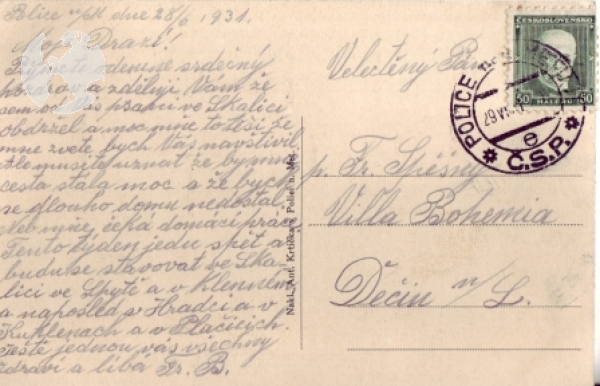 Police n/M dne 28/6 1931.
Moji Drazí!
Přijměte odemne srdečný
pozdrav a zděluji Vám že
jsem od Vás psaní ve Skalici
obdržel a moc mne to těší že
mne zvete bych Vás navštívil
Ale musíte uznat že by mne
cesta stála moc a že bych
se dlouho domu nedostal
Neb mne čeká domácí práce
Tento týden jedu zpět a
budu se stavovat ve Ska
lici ve Smyti a v Klenném
a naposled v Hradci a v
Kuklenach a v Plačicích.
Ještě jednou vás všechny
zdraví a líbá Fr. B.
Nakl. Ant. Krtička, Police n. Met.
Velectěný Pán
p. Fr. Spěšný
Villa Bohemia
Děčín n/L.
ČESKOSLOVENSKO
50 HALÉŘŮ 50
POLICE NAD METUJÍ
29 VI
e
Č.S.P.